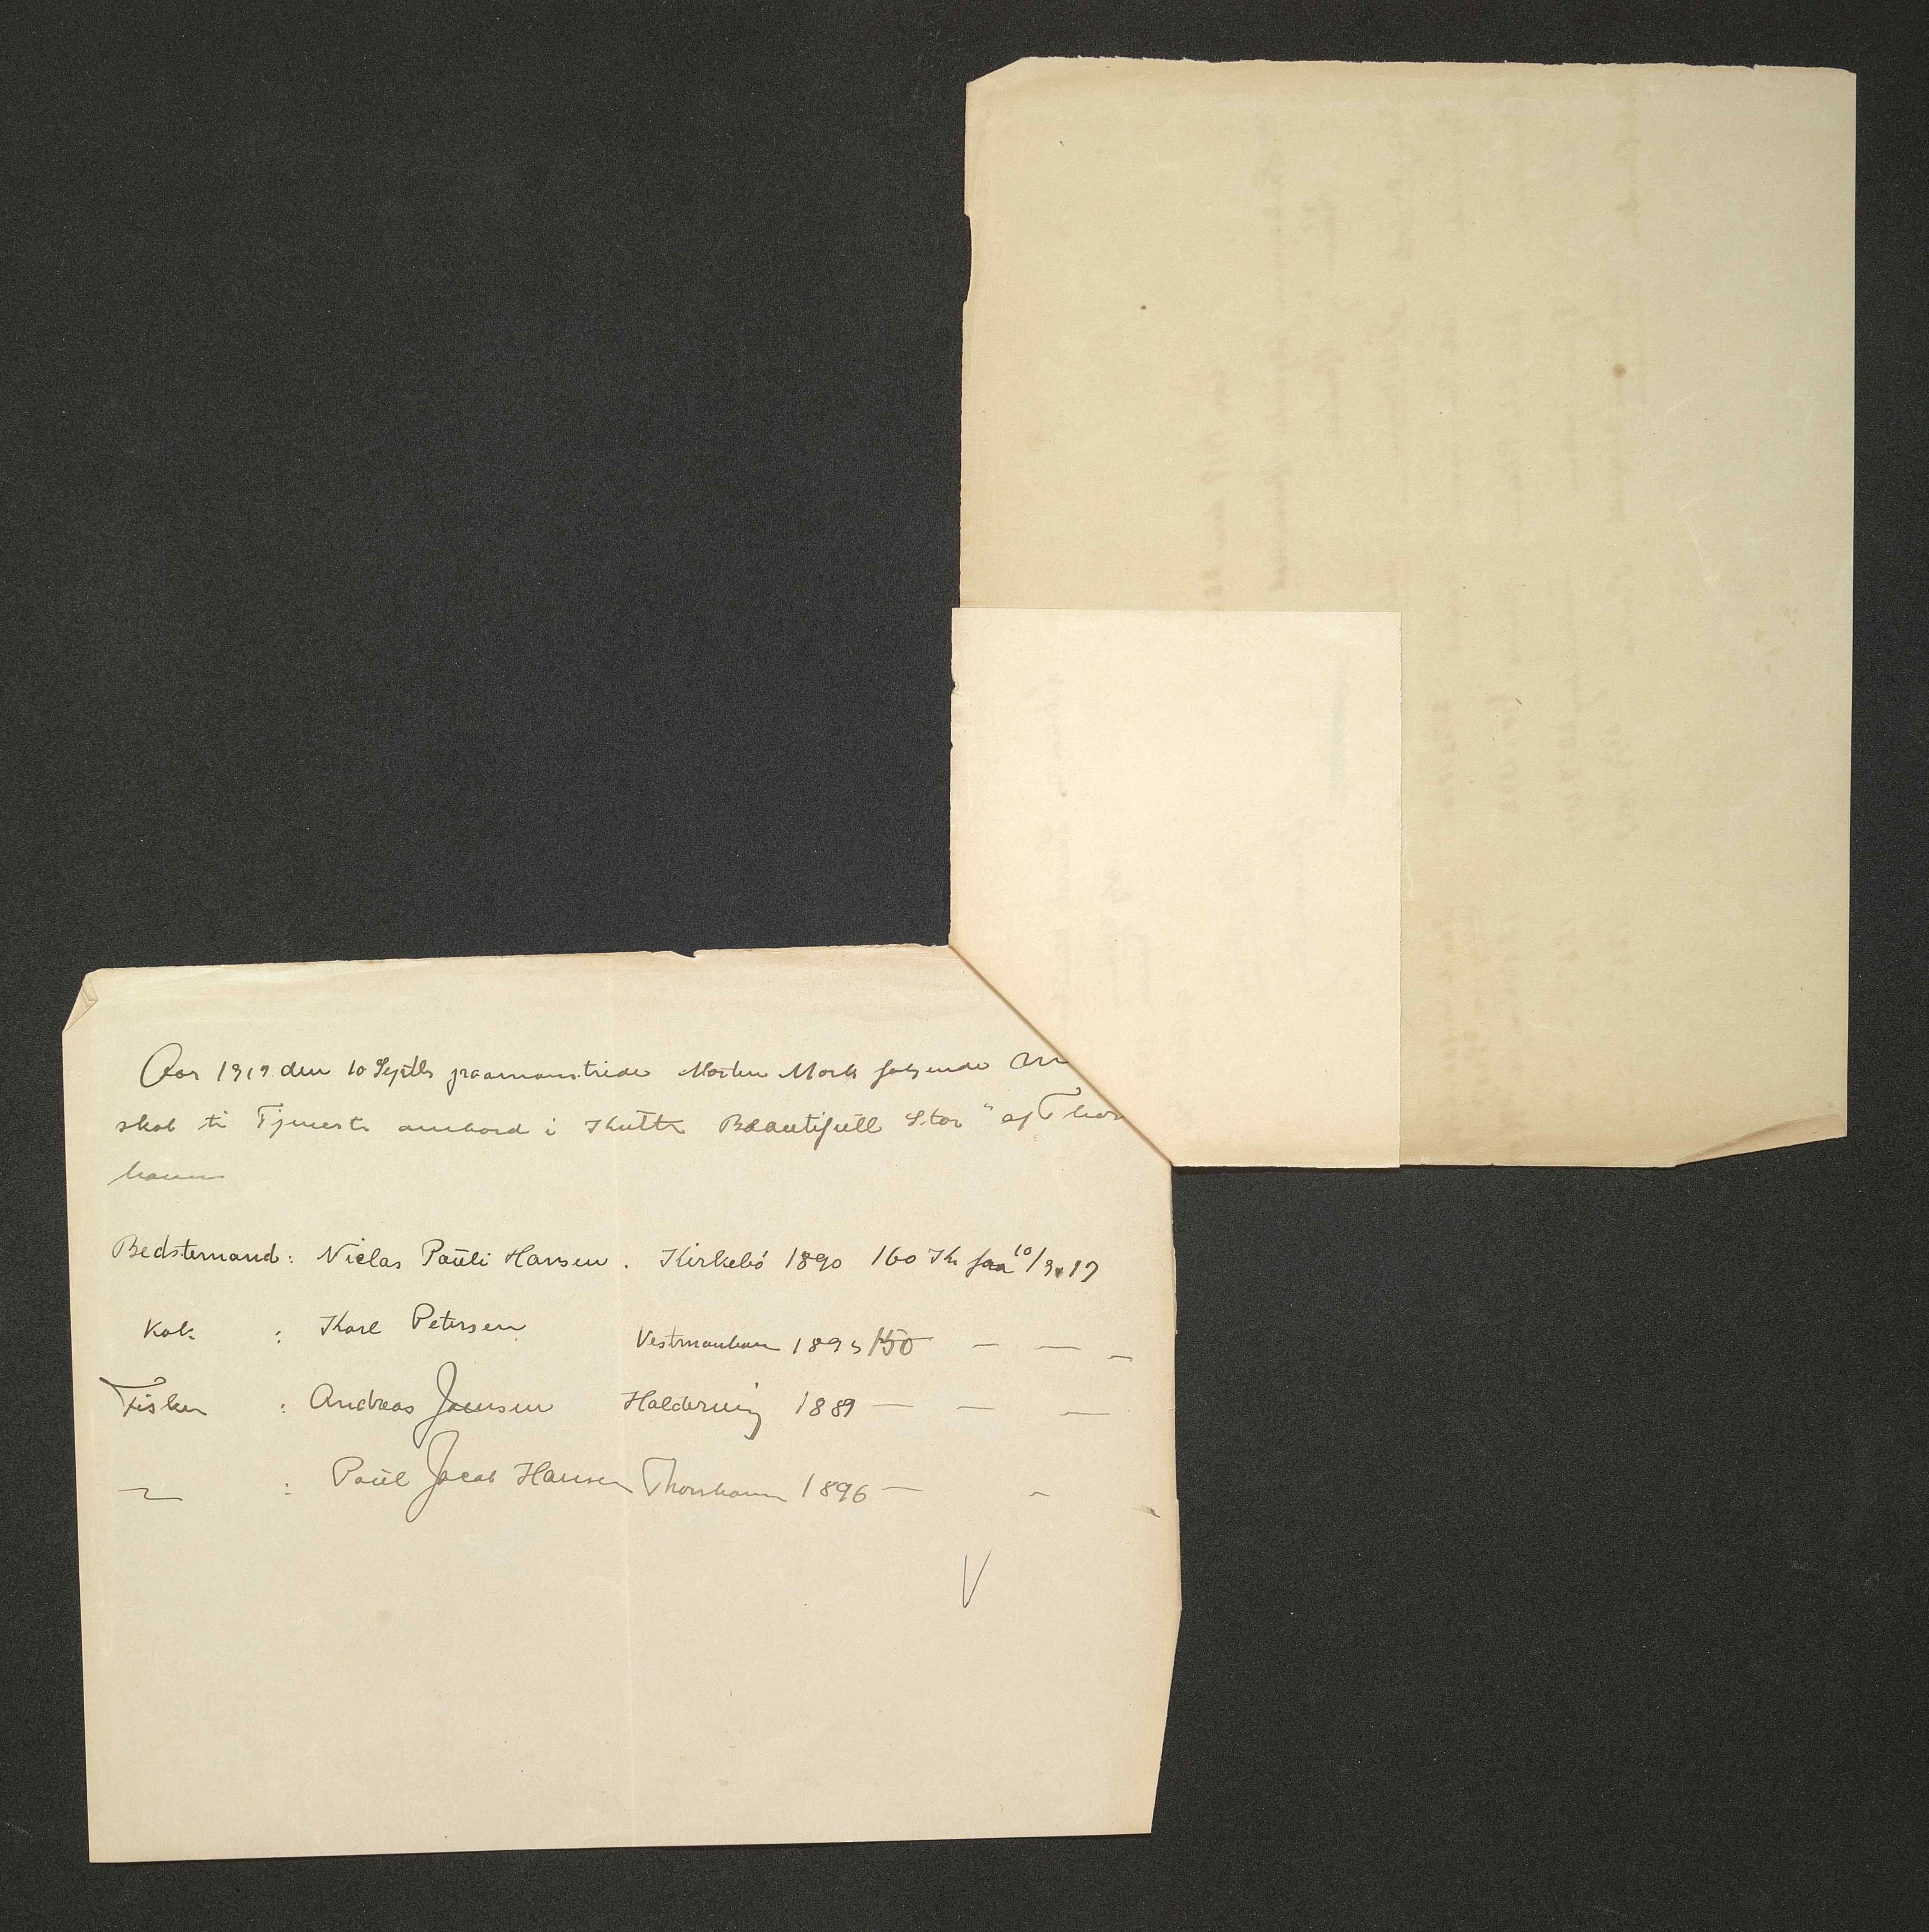 Aar 1919 den 10 Septbr paamönstrede Morten Mork følgende Man
skab ti Tjeneste ombord i Kutt. Beautifull Star" af Thors
havn
Bedstemand: Niclas Pauli Hansen. Kirkebö 1890 160 Kr fra 10/9.19
Kok : Karl Petersen Vestmanhavn 1893 150 — — —
Fisker : Andreas Joensen Haldervig 1889 — — —
" : Paul Jacob Hansen Thorshavn 1896 — —
V